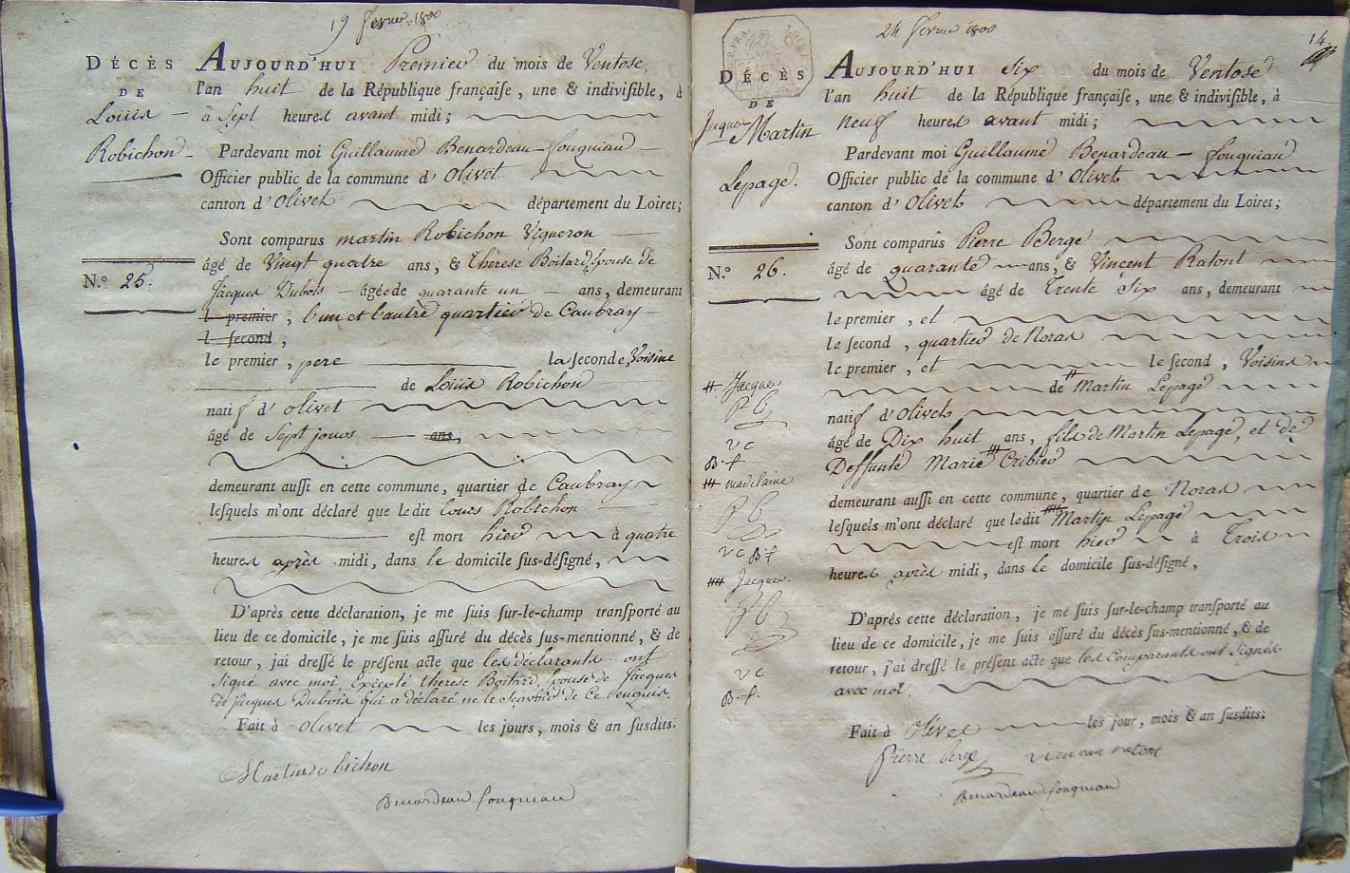 19 fevrier 1800
DÉCÈS
DE
Louis
Robichon
N.º 25.
AUJOURD'HUI Premier du mois de Ventose
l'an huit de la République françaiſe, une & indiviſible, à
à Sept heures avant midi;
Pardevant moi Guillaume Benardeau-fouqueau
Officier public de la commune d' Olivet
canton d' Olivet département du Loiret;
Sont comparus martin Robichon Vigneron
âgé de Vingt quatre ans, & Therese Boitard Epouse de
Jacques Dubois âgée de quarante un ans, demeurant
l premier, l'un et l'autre quartier de Caubray
l ſecond ;
le premier, pere la ſeconde, Voisine
de Louis Robichon
natif d' olivet
âgé de Sept jours ans,
demeurant auſſi en cette commune, quartier de Caubray
leſquels m'ont déclaré que ledit Louis Robichon
eſt mort hier à quatre
heures après midi, dans le domicile ſus-déſigné,
D'après cette déclaration, je me ſuis ſur-le-champ tranſporté au
lieu de ce domicile, je me ſuis aſſuré du décès ſus-mentionné, & de
retour, j'ai dreſſé le préſent acte que les déclarants ont
Signé avec moi Excepté therese Boitard, Epouse de Jacques
Dubois qui a déclaré ne le Scavoir de Ce Requise
Fait à Olivet les jours, mois & an ſusdits.
Martin Robichon
Benardeau fouqueau
24 fevrier 1800
14
DÉCÈS
DE
Jacques Martin
Lepage.
N.º 26.
AUJOURD'HUI Six du mois de Ventose
l'an huit de la République françaiſe, une & indiviſible, à
Neuf heures avant midi;
Pardevant moi Guillaume Benardeau-fouqueau
Officier public de la commune d' Olivet
canton d' Olivet département du Loiret;
Sont comparus Pierre Bergé
âgé de quarante ans, & Vincent Ratont
âgé de Trente Six ans, demeurant
le premier, et
le ſecond, quartier de Noras
le premier, et le ſecond, Voisins
de # Martin Lepage
natif d' Olivet
âgé de Dix huit ans, fils de Martin Lepage, et de
Deffunte Marie Cribier
demeurant auſſi en cette commune, quartier de Noras
leſquels m'ont déclaré que ledit Martin Lepage
eſt mort hier à Trois
heures après midi, dans le domicile ſus-déſigné,
D'après cette déclaration, je me ſuis ſur-le-champ tranſporté au
lieu de ce domicile, je me ſuis aſſuré du décès ſus-mentionné, & de
retour, j'ai dreſſé le préſent acte que les Comparants ont Signés
avec moi.
Fait à Olivet les jour, mois & an ſusdits;
# Jacques
P B
V C
B f
P B
V C B f
Jacques
P B
V C
B f.
Pierre bergé
Benardeau fouqueau